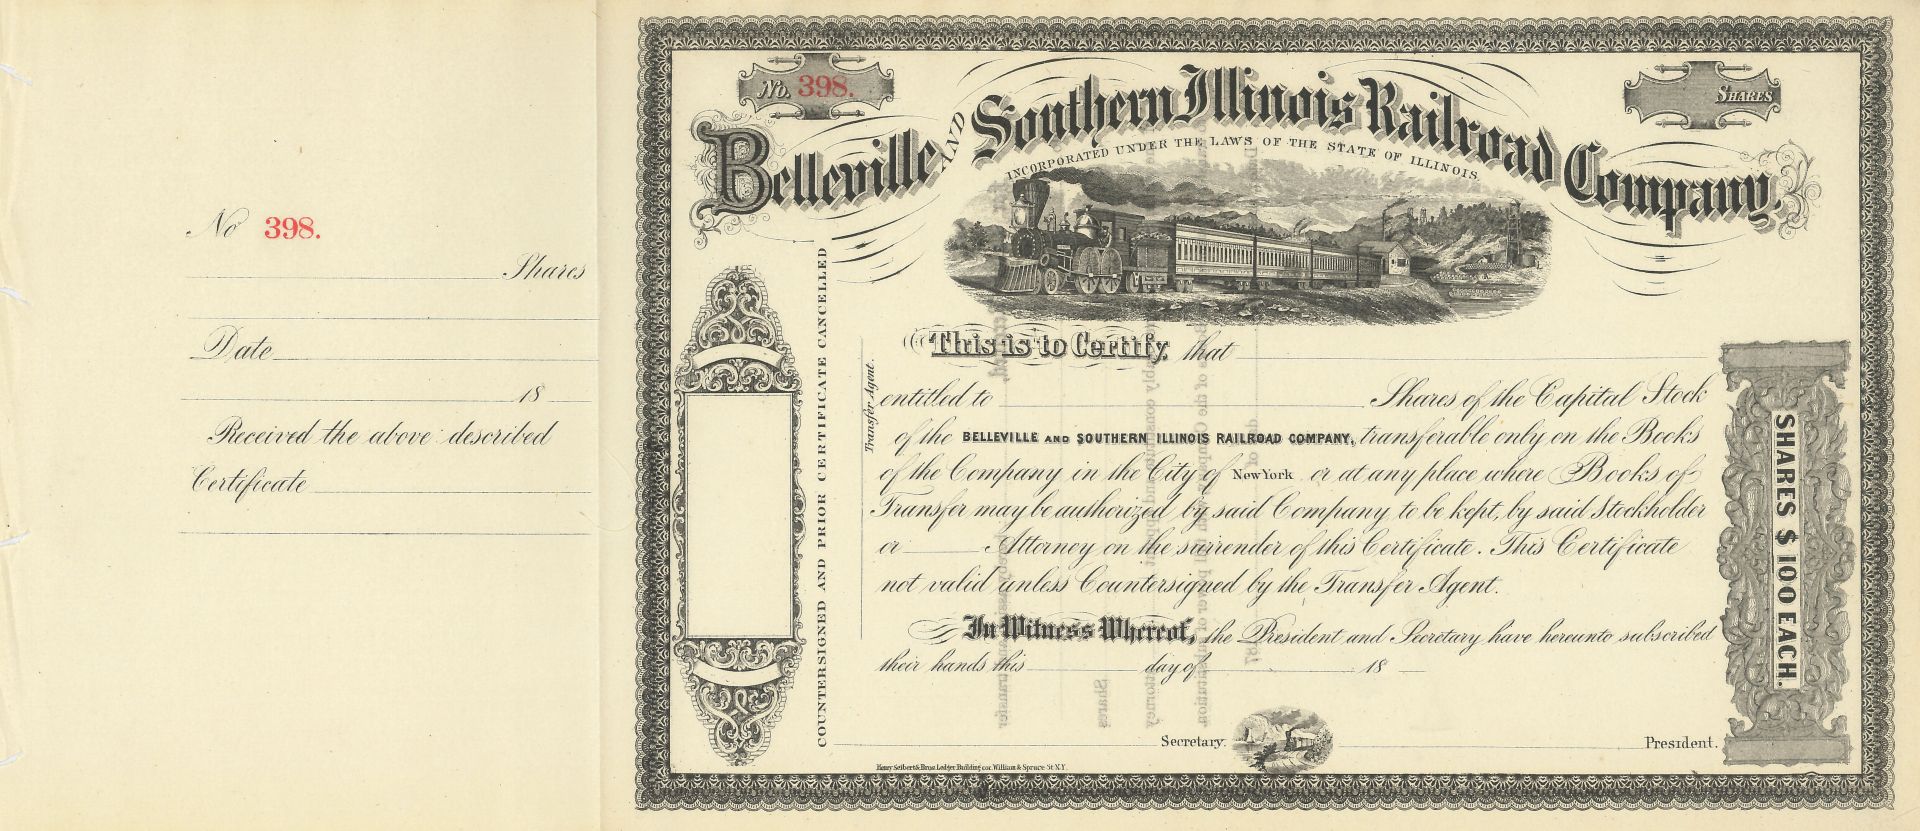 No 398.
Shares
Date
18
Received the above described
Certificate
No. 398.
SHARES
Belleville AND Southern Illinois Railroad Company.
INCORPORATED UNDER THE LAWS OF THE STATE OF ILLINOIS.
This is to Certify, that
entitled to Shares of the Capital Stock
of the BELLEVILLE AND SOUTHERN ILLINOIS RAILROAD COMPANY, transferable only on the Books
of the Company in the City of New York or at any place where Books of
Transfer may be authorized by said Company to be kept, by said Stockholder
or Attorney on the surrender of this Certificate. This Certificate
not valid unless Countersigned by the Transfer Agent.
In Witness Whereof, the President and Secretary have hereunto subscribed
their hands this day of 18
Secretary. President.
COUNTERSIGNED AND PRIOR CERTIFICATE CANCELLED
Transfer Agent.
SHARES $100 EACH.
Henry Seibert & Bros. Ledger Building cor. William & Spruce St. N.Y.